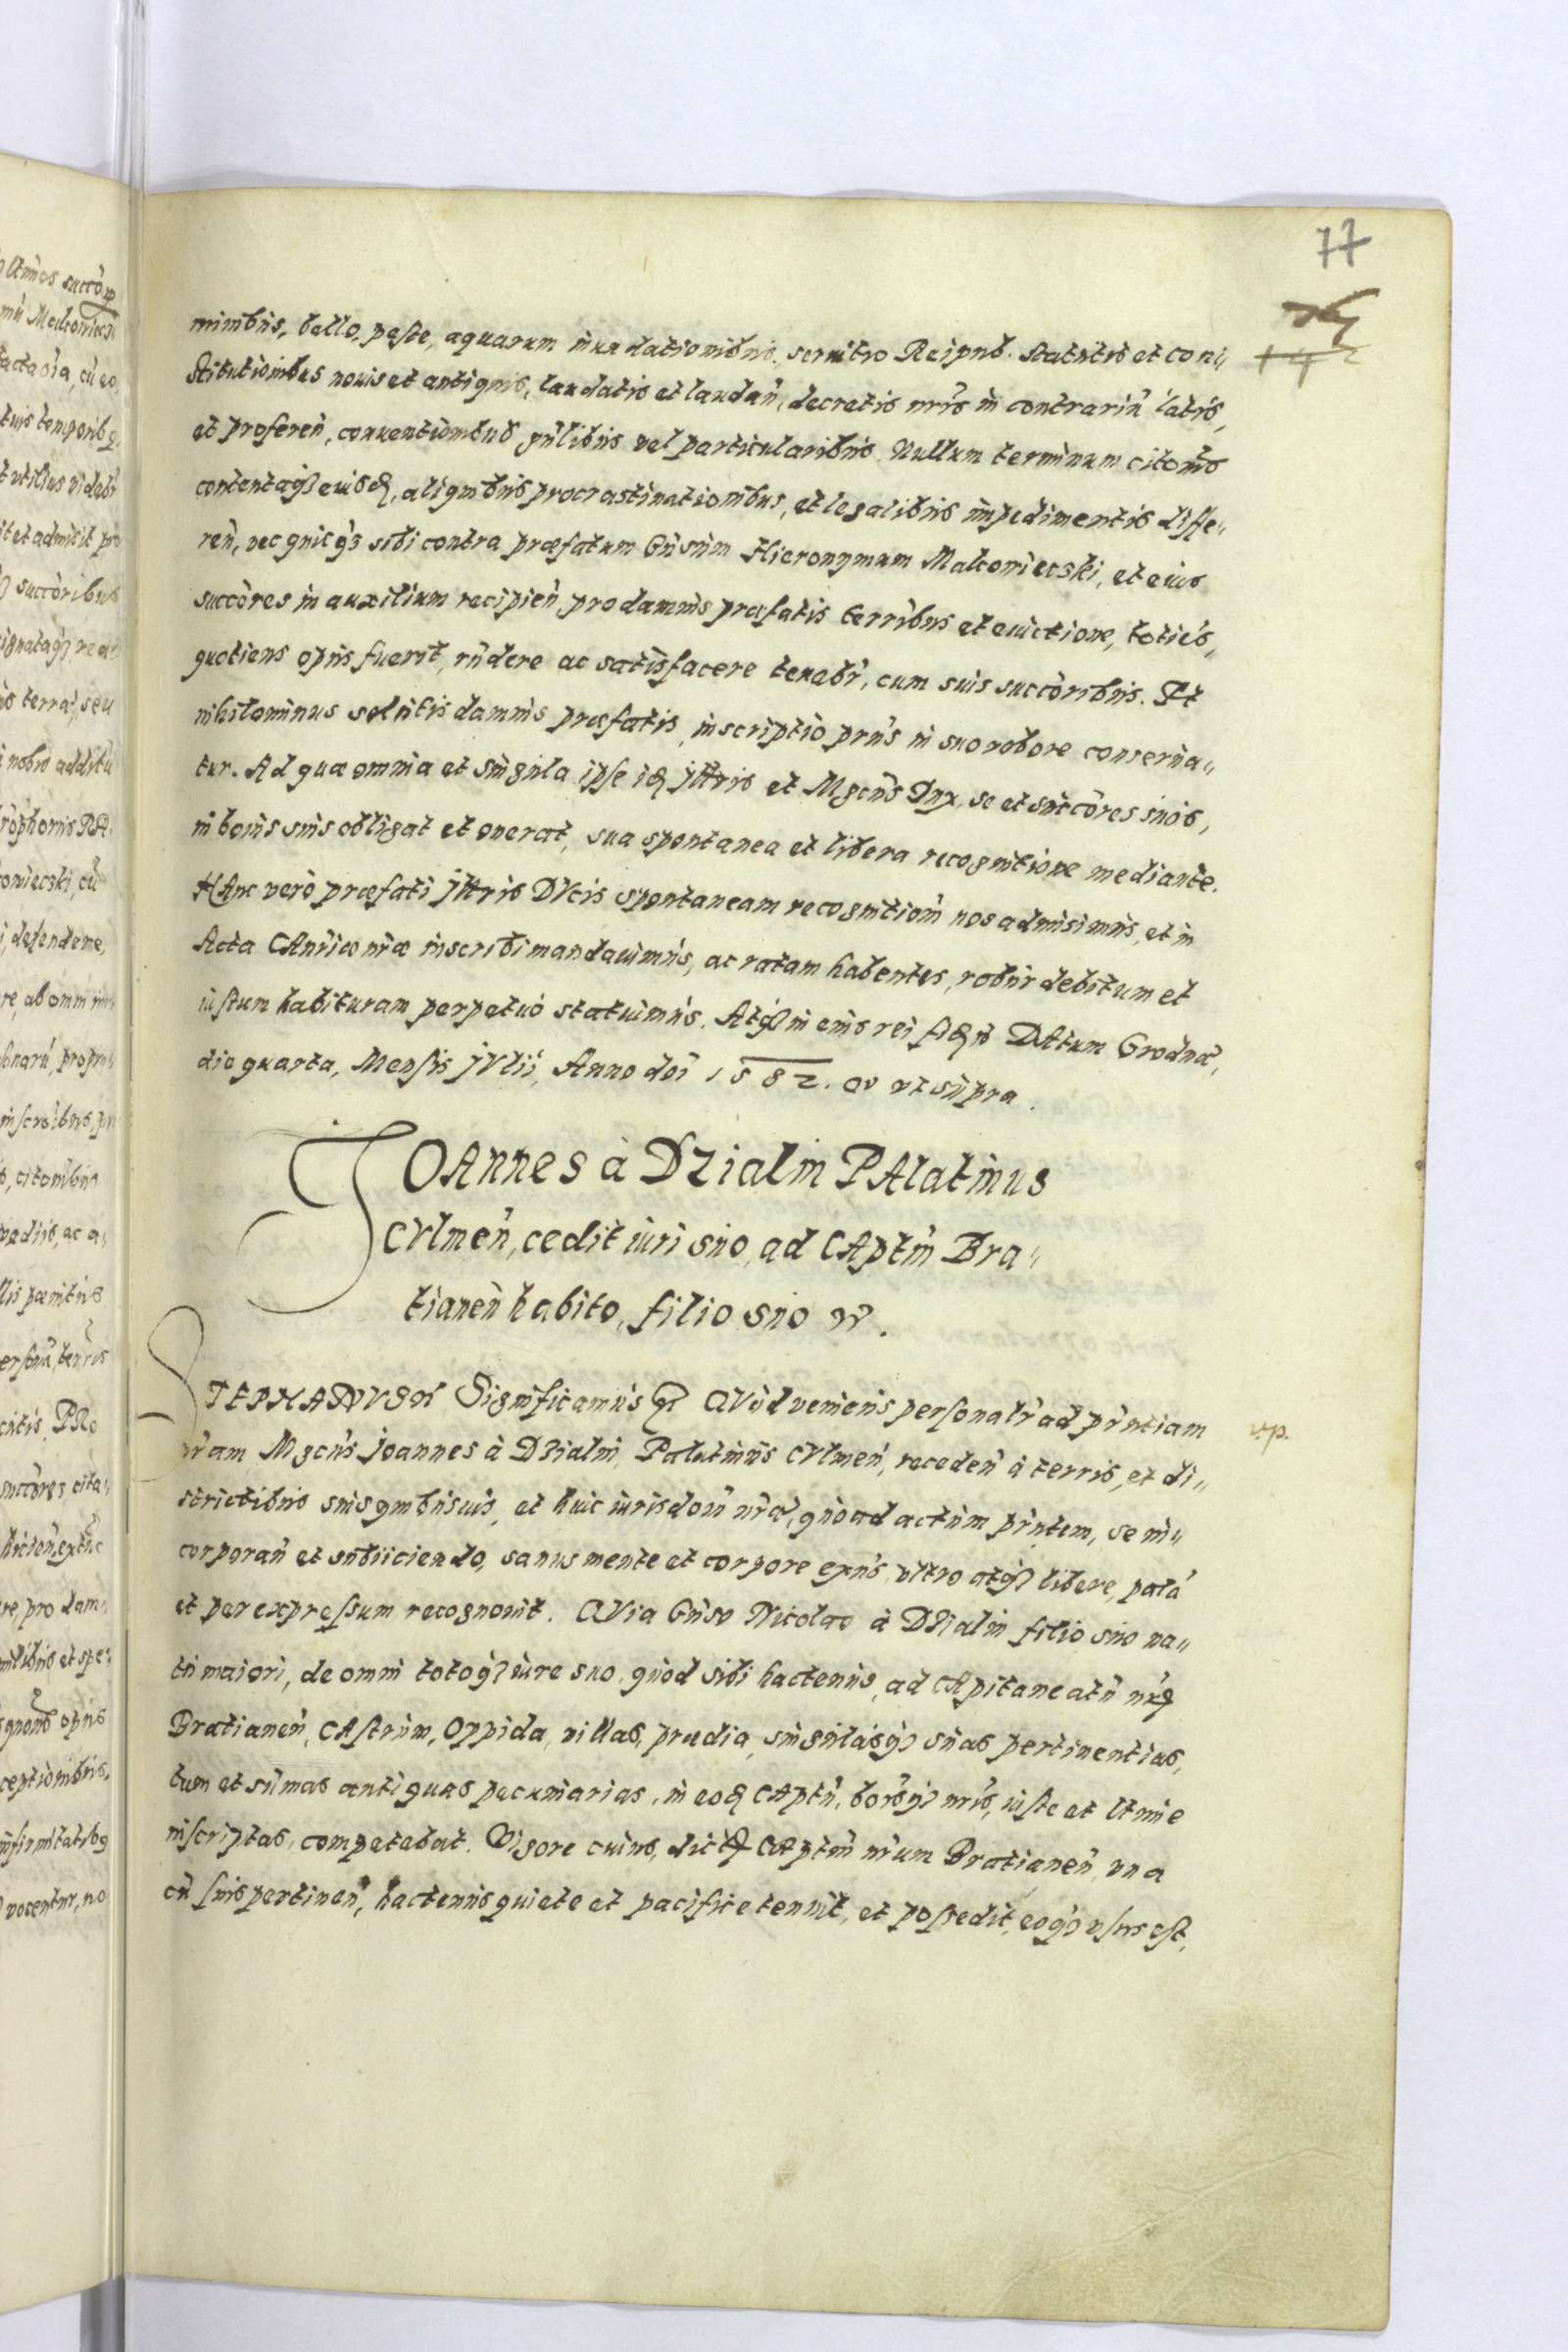 77
minibus, bello, peste, aquarum inundationibus, seruitio Reipub. statutis et con„
stitutionibus nouis et antiquis, laudatis et laudan̄, decretis nr̄is in contrariū latis,
et proferen̄, conuentionibus gn̄libus vel particularibus. Nullum terminum citōnis
contentaqꝫ eiusdē, aliquibus procrastinationibus, et legalibus impedimentis diffe„
ren̄, nec quicqꝫ sibi contra præfatum Gn̄sum Hieronymum Malcowiecski, et eius
succōres in auxilium recipien̄, pro damnis præfatis terribus et euictione, toties,
quotiens opus fuerit, rn̄dere ac satisfacere tenebr̄, cum suis succōribus. Et
nihilominus solutis damnis præfatis, inscriptio prn̄s in suo robore conserua„
tur. Ad quæ omnia et singula ipse idē jllr̄is et Mgcūs Dux, se et succōres suos,
in bonis suis obligat et onerat, sua spontanea et libera recognitione mediante.
HAnc verò præfati jllr̄is DVcis spontaneam recognitiōm nos admisimus, et in
Acta CAnr̄iæ nr̄æ inscribi mandauimus, ac ratam habentes, robur debitum et
iustum habituram perpetuò statuimus. Atqꝫ in eius rei fidē DAtum Grodnæ,
die quarta, Mensis jVlii, Anno dn̄i 1582. vt supra.
JOAnnes à Dzialin PAlatinus
CVlmen̄, cedit iuri suo, ad CAptm̄ Bra„
tianen̄ habito, filio suo
STEPHANVS Significamus QVòd veniens personalr̄ ad prn̄tiam
v.p.
nr̄am, Mgcūs joannes à Dzialin, Palatinus CVlmen̄, receden̄ à terris, et di„
strictibus suis quibusuis, et huic iurisdōni nr̄æ, quoad actum prn̄tem, se in„
corporan̄ et subiiciendo, sanus mente et corpore exn̄s, vltro atqꝫ libere, palā
et per expressum recognouit. QVia Gn̄so Nicolao à Dzialin filio suo na„
tu maiori, de omni totoqꝫ iure suo, quod sibi hactenus, ad CApitaneatū nr̄m
Bratianen̄, CAstrum, Oppida, villas, prædia, singulasqꝫ suas pertinentias,
tum et sūmas antiquas pecuniarias, in eodē CAptū, bonisqꝫ nr̄is, iuste et ltn̄ie
inscriptas, competebat. Vigore cuius, dictū CAptm̄ nr̄um Bratianen̄, vna
cū suis pertinen̄, hactenus quiete et pacifice tenuit, et possedit, eoqꝫ vsus est,